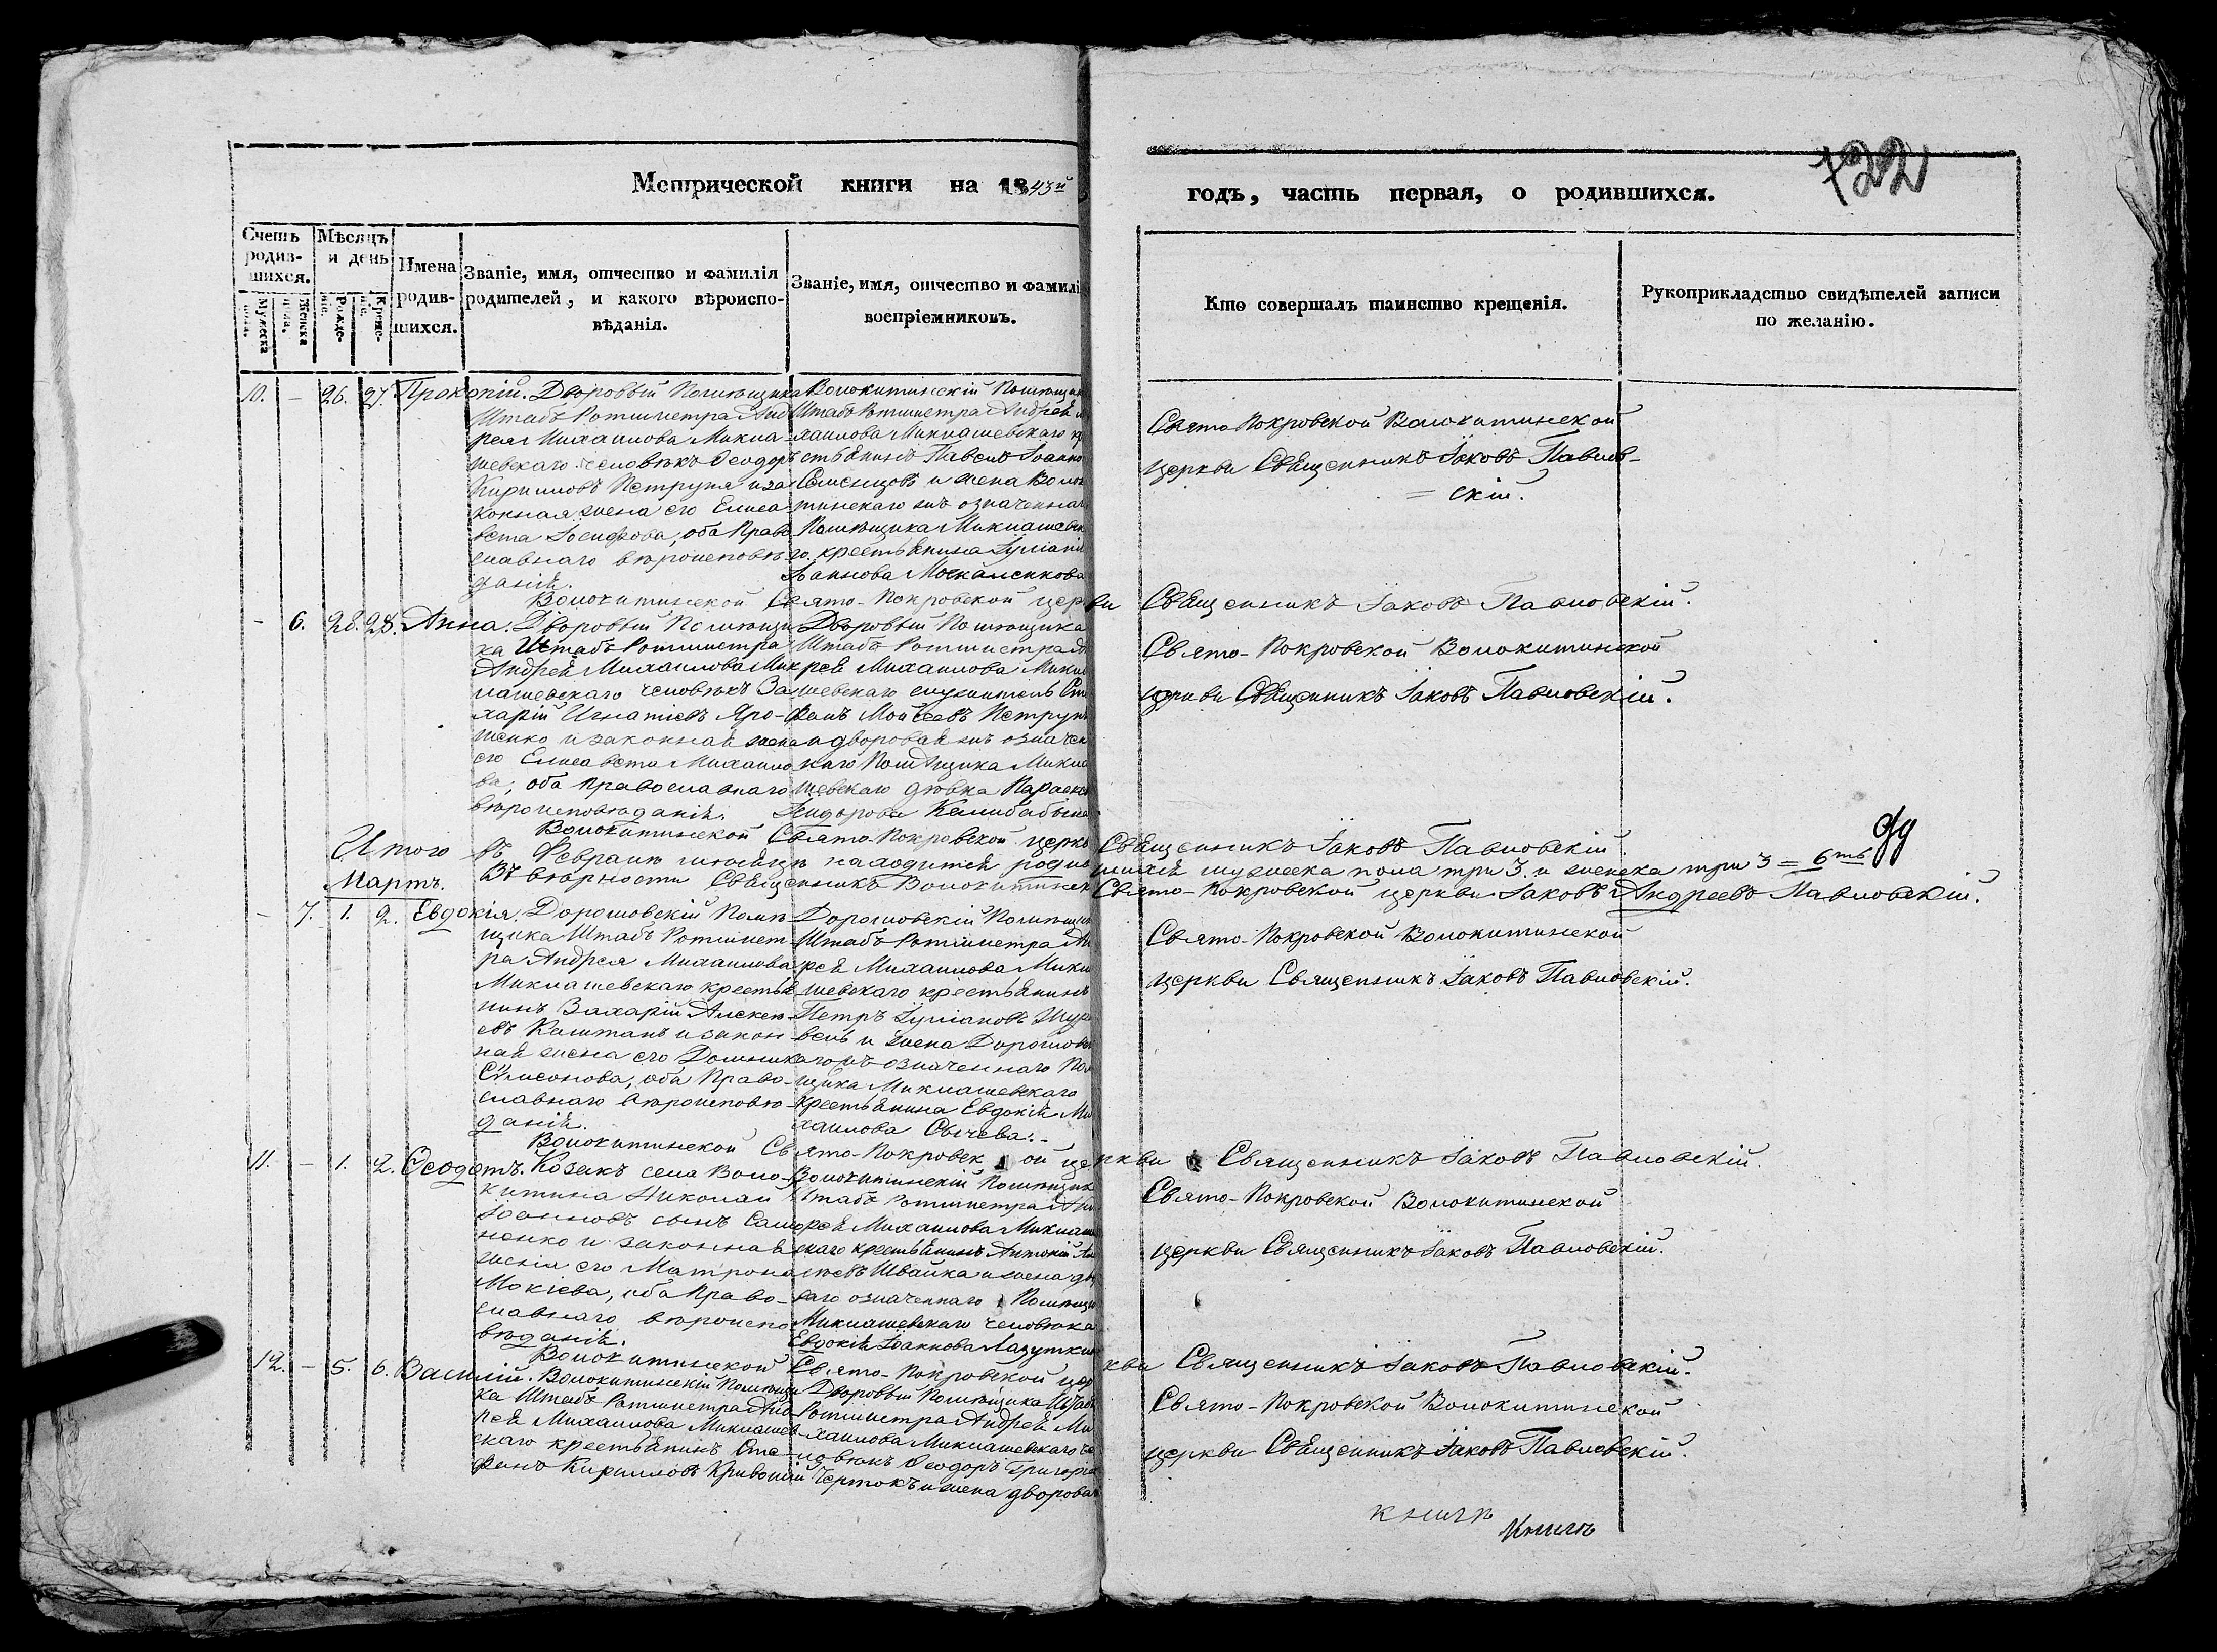 Метрической книги на 1843й
годъ, часть первая, о родившихся.
722
Счетъ родив-шихся.
Мужеска пола.
Женска пола.
Мѣсяцъ и день
Рожде-нія.
Креще-нія.
Имена родив-шихся.
Званіе, имя, отчество и фамилія
родителей, и какого вѣроиспо-
вѣданія.
Званіе, имя, отчество и фамилі
воспріемниковъ.
Кто совершалъ таинство крещенія.
Рукоприкладство свидѣтелей записи
по желанію.
10. – 26. 27. Прокопій.
Дворовый Помѣщика
Штабъ Ротмистра Анд
рея Михаилова Микла-
шевскаго человѣкъ Ѳеодоръ
Кирилловъ Петруня и за
конная жена его Елиса-
вета Іосифова, оба Право
славнаго вѣроисповѣ-
данія.
Волокитинскій Помѣщик
Штабъ Ротмистра Андрея М
хаилова Миклашевскаго кр
естьянинъ Павелъ Іоанно
Семенцовъ и жена Волок
тинскаго жъ означеннаг
Помѣщика Миклашевск
го крестьянина Іуліанія
Іоаннова Москаленкова
Свято Покровской Волокитинской
церкви Священникъ Іаковъ Павлов-
= скій.
Волокитинской Свято-Покровской церкви Священникъ Іаковъ Павловскій.
– 6. 28. 28. Анна.
Дворовый Помѣщи
ка Штабъ Ротмистра
Андрея Михаилова Мик
лашевскаго человѣкъ За
харій Игнатіевъ Яро-
шенко и законная жена
его Елисавета Михаило
ва, оба православнаго
вѣроисповѣданія.
Дворовый Помѣщика
Штабъ Ротмистра Ан
рея Михаилова Микла
шевскаго служитель Сте
фанъ Моисеевъ Петрун
и дворовая жъ означен
наго Помѣщика Микла
шевскаго дѣвка Параске
Исидорова Калибабына
Свято-Покровской Волокитинской
церкви Священникъ Іаковъ Павловскій.
Волокитинской Свято-Покровской церкв Священникъ Іаковъ Павловскій.
Итого въ Февралѣ мѣсяцѣ находится родив шихся мужеска пола три 3. и женска три 3 = 6ть
Мартъ. Въ вѣрности Священникъ Волокитинск Свято-Покровской церкви Іаковъ Андреевъ Павловскій.
– 7. 1. 2. Евдокія.
Дорошовскій Помѣ
щика Штабъ Ротмист
ра Андрея Михаилова
Миклашевскаго крестья
нинъ Захарій Алексѣ
евъ Каштанъ и закон
ная жена его Домник
Симеонова, оба Право-
славнаго вѣроисповѣ-
данія.
Дорошовскій Помѣщик
Штабъ Ротмистра Ан
рея Михаилова Микла
шевскаго крестьянинъ
Петръ Іуліановъ Шу
вель и жена Дорошовс
каго жъ означеннаго По
щика Миклашевскаго
крестьянина Евдокія Ми
хаилова Сычева.-
Свято-Покровской Волокитинской
церкви Священникъ Іаковъ Павловскій.
Волокитинской Свято-Покровской церкви Священникъ Іаковъ Павловскій.
11. – 1. 2. Ѳеодотъ.
Козакъ села Воло-
китина Николай
Іоанновъ сынъ Само
ненко и законная
жена его Матрона
Мокіева, оба Право-
славнаго вѣроиспо
вѣданія.
Волокитинскій Помѣщик
Штабъ Ротмистра Ан
рея Михаилова Миклаш
скаго крестьянинъ Антоній Ал
ѣевъ Швайка и жена дво
ваго означеннаго Помѣщи
Миклашевскаго человѣка
Евдокія Іоаннова Лазуткин
Свято-Покровской Волокитинской
церкви Священникъ Іаковъ Павловскій.
Волокитинской Свято-Покровской церкви Священникъ Іаковъ Павловскій.
12. – 5. 6. Василій.
Волокитинскій Помѣщи
ка Штабъ Ротмистра Анд
рея Михаилова Миклашев
скаго крестьянинъ Сте-
фанъ Кирилловъ Кривоший
Дворовый Помѣщика Штабъ
Ротмистра Андрея Ми
хаилова Миклашевскаго че
ловѣкъ Ѳеодоръ Григорі
Чертокъ и жена дворова
Свято-Покровской Волокитинской
церкви Священникъ Іаковъ Павловскій.
книги
книги